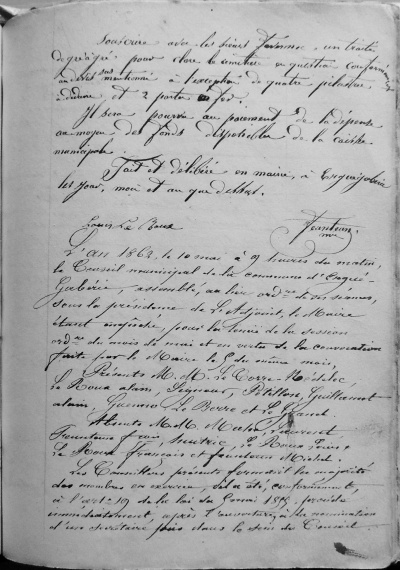 Souscrire avec les sieurs un traité
de gré à gré pour clore le cimetière en question conformément
au devis sus mentionné à l'exception de quatre pilastres
et 2 portes en fer.
Il sera pourvu au paiement de la dépense
au moyen des fonds disponibles de la caisse
municipale.
Fait et délibéré en mairie, à Ergué-Gabéric
les jour, mois et an que dessus.
Louis Le Roux
L'an 1862, le 10 mai à 9 heures du matin,
le Conseil municipal de la commune d'Ergué-
Gabéric, assemblé, au lieu ordre de ses séances,
sous la présidence de l'Adjoint, le Maire
étant empêché, pour la tenue de la session
ordre du mois de mai et en vertu de la convocation
faite par le Maire le 5 du même mois,
Présents M.M. Le Corre
Le Roux alain, Seznec, Pétillon,
alain, Le Berre et Le Grand.
Absents M.M. Mahé Laurent
Le Roux Louis,
Le Roux français et
Les Conseillers présents formant la majorité
des membres en exercice, il a été, conformément,
à l'art. 19 de la loi du 5 mai 1855, procédé
immédiatement, après l'ouverture, à la nomination
d'un secrétaire pris dans le sein du Conseil